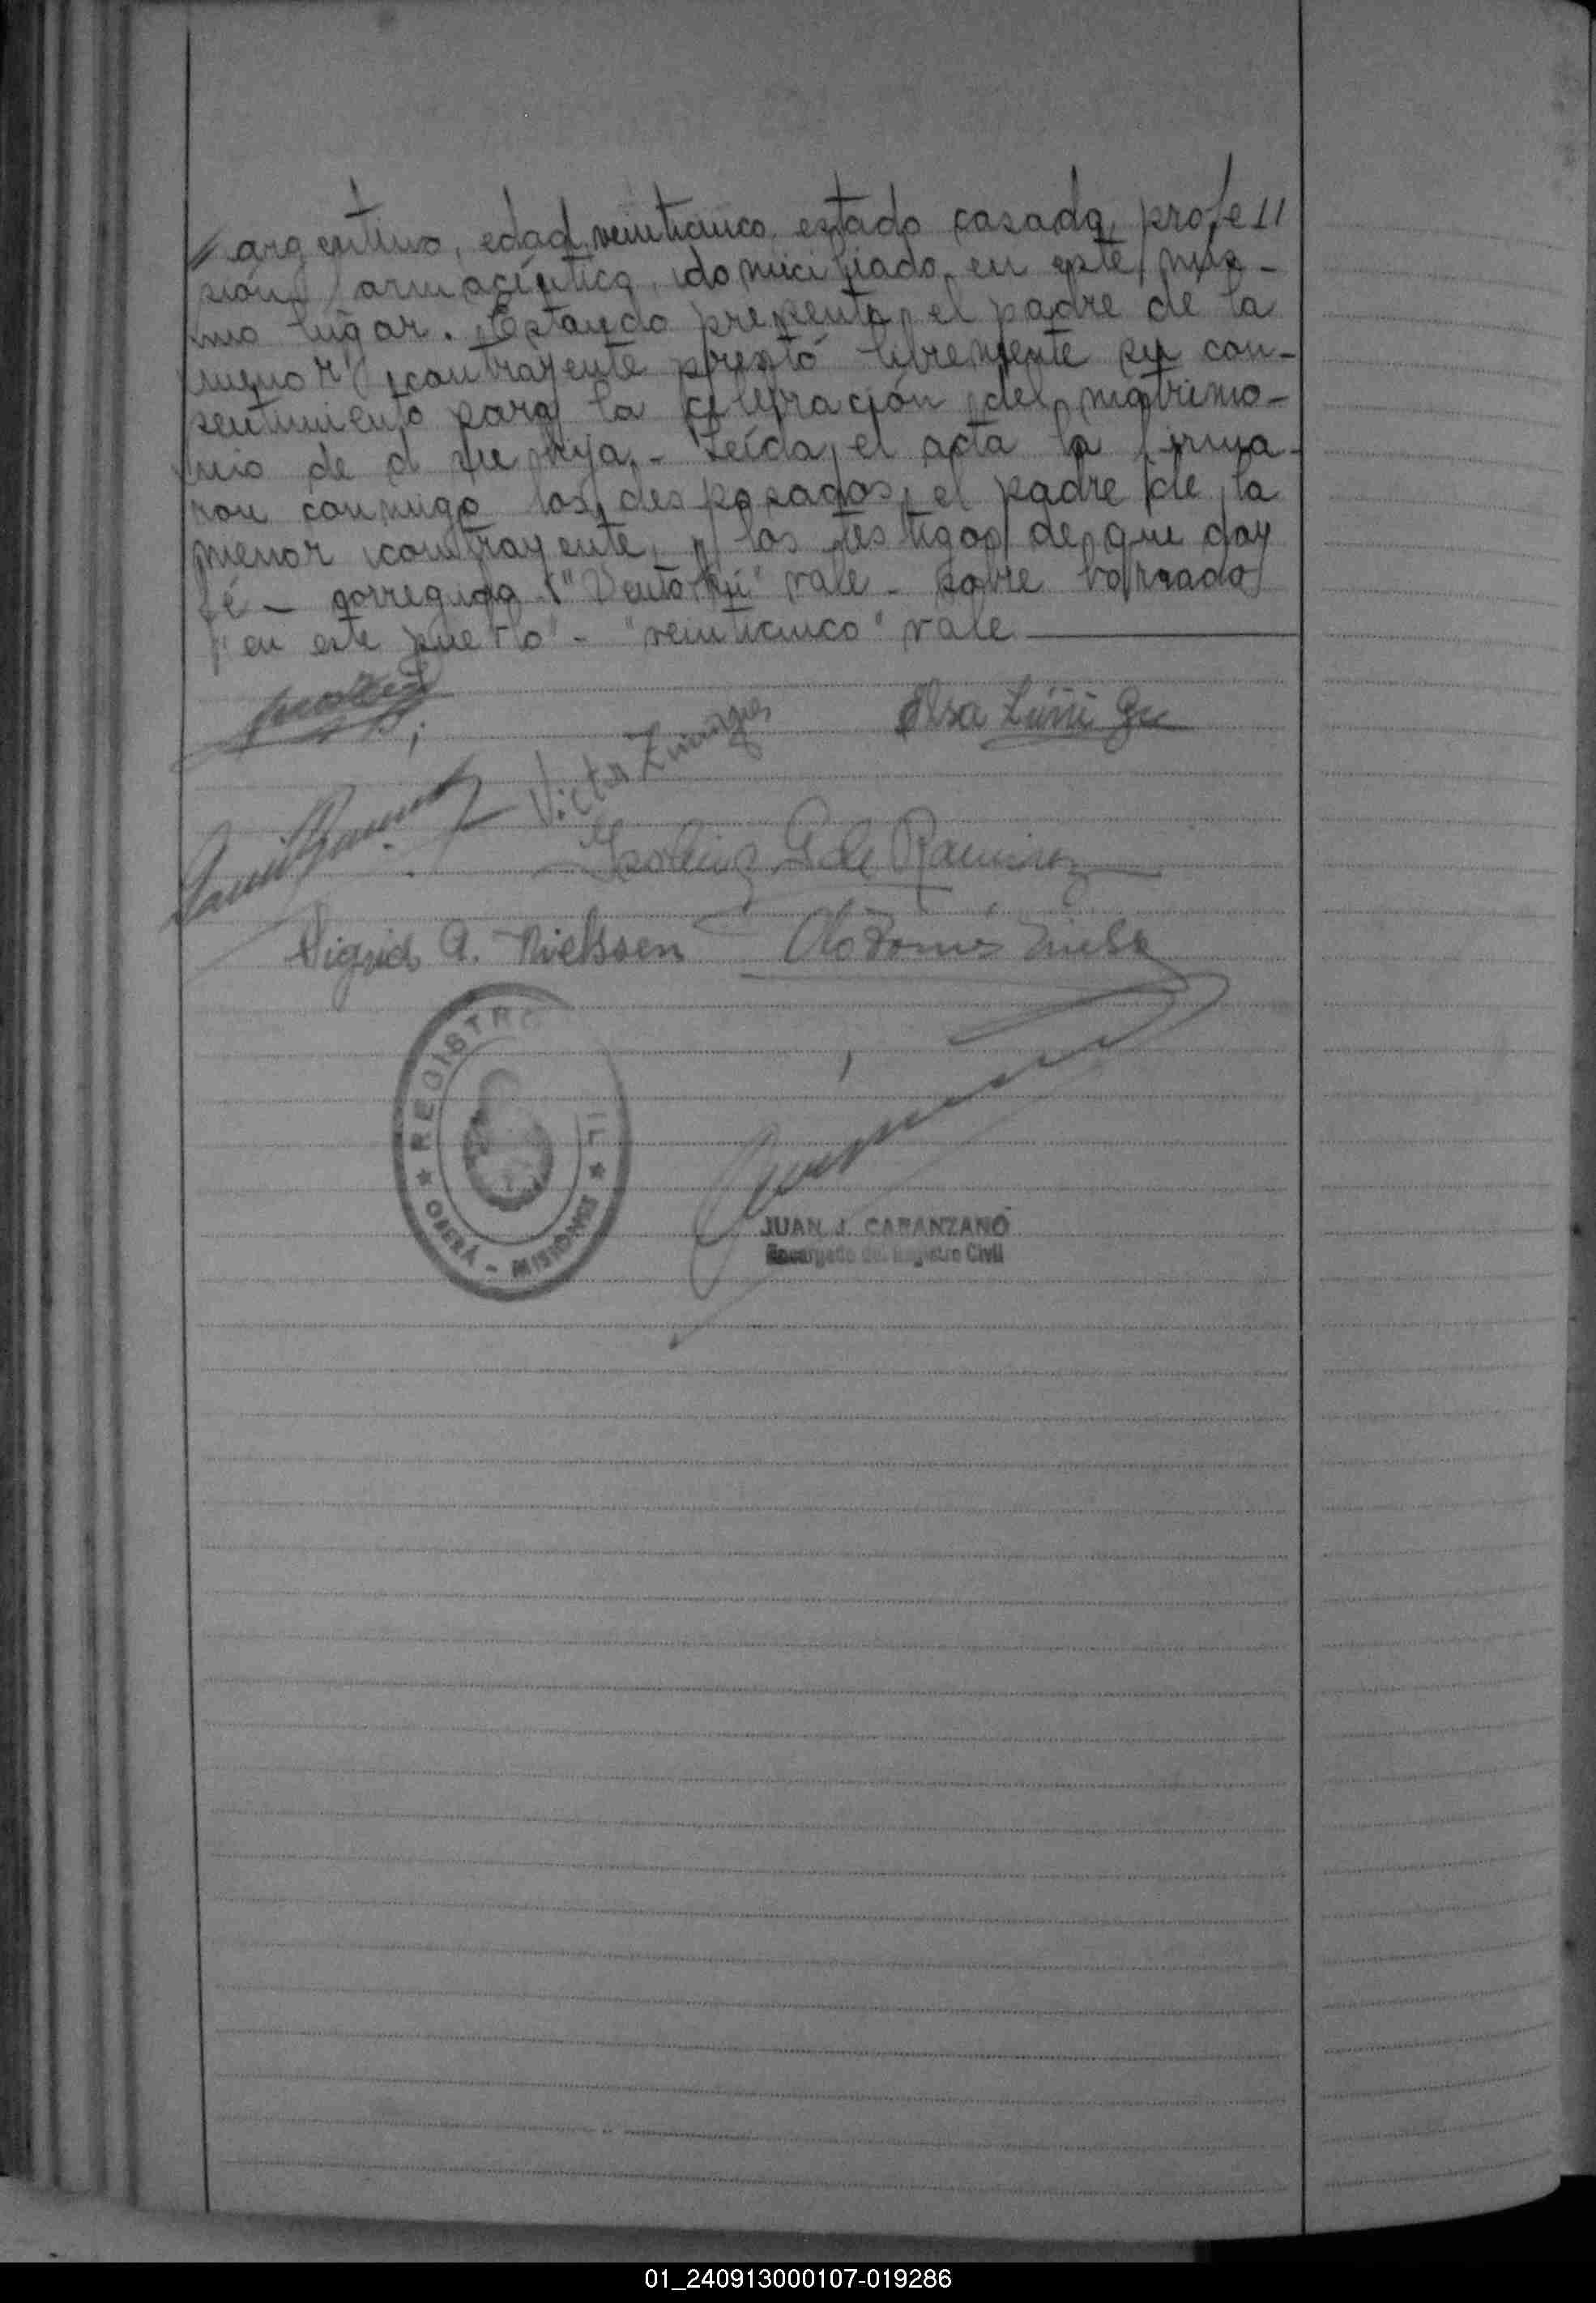 // argentino, edad veinticinco, estado casada, profe//
sión farmacéutica, domiciliado en este mis-
mo lugar. Estando presente el padre de la
menor contrayente prestó libremente su con-
sentimiento para la celebración del matrimo-
nio de su hija.- Leída el acta la firma-
ron conmigo los desposados, el padre de la
menor contrayente, y los testigos de que doy
fé - corregido vale - sobre borrado
"en este pueblo" - "veinticinco" vale
Elsa
Victor
de Ramirez
Sigrid A. Nielssen
REGISTRO IL
OBERÁ - MISIONES
JUAN J. CARANZANO
Encargado del Registro Civil
01_240913000107-019286